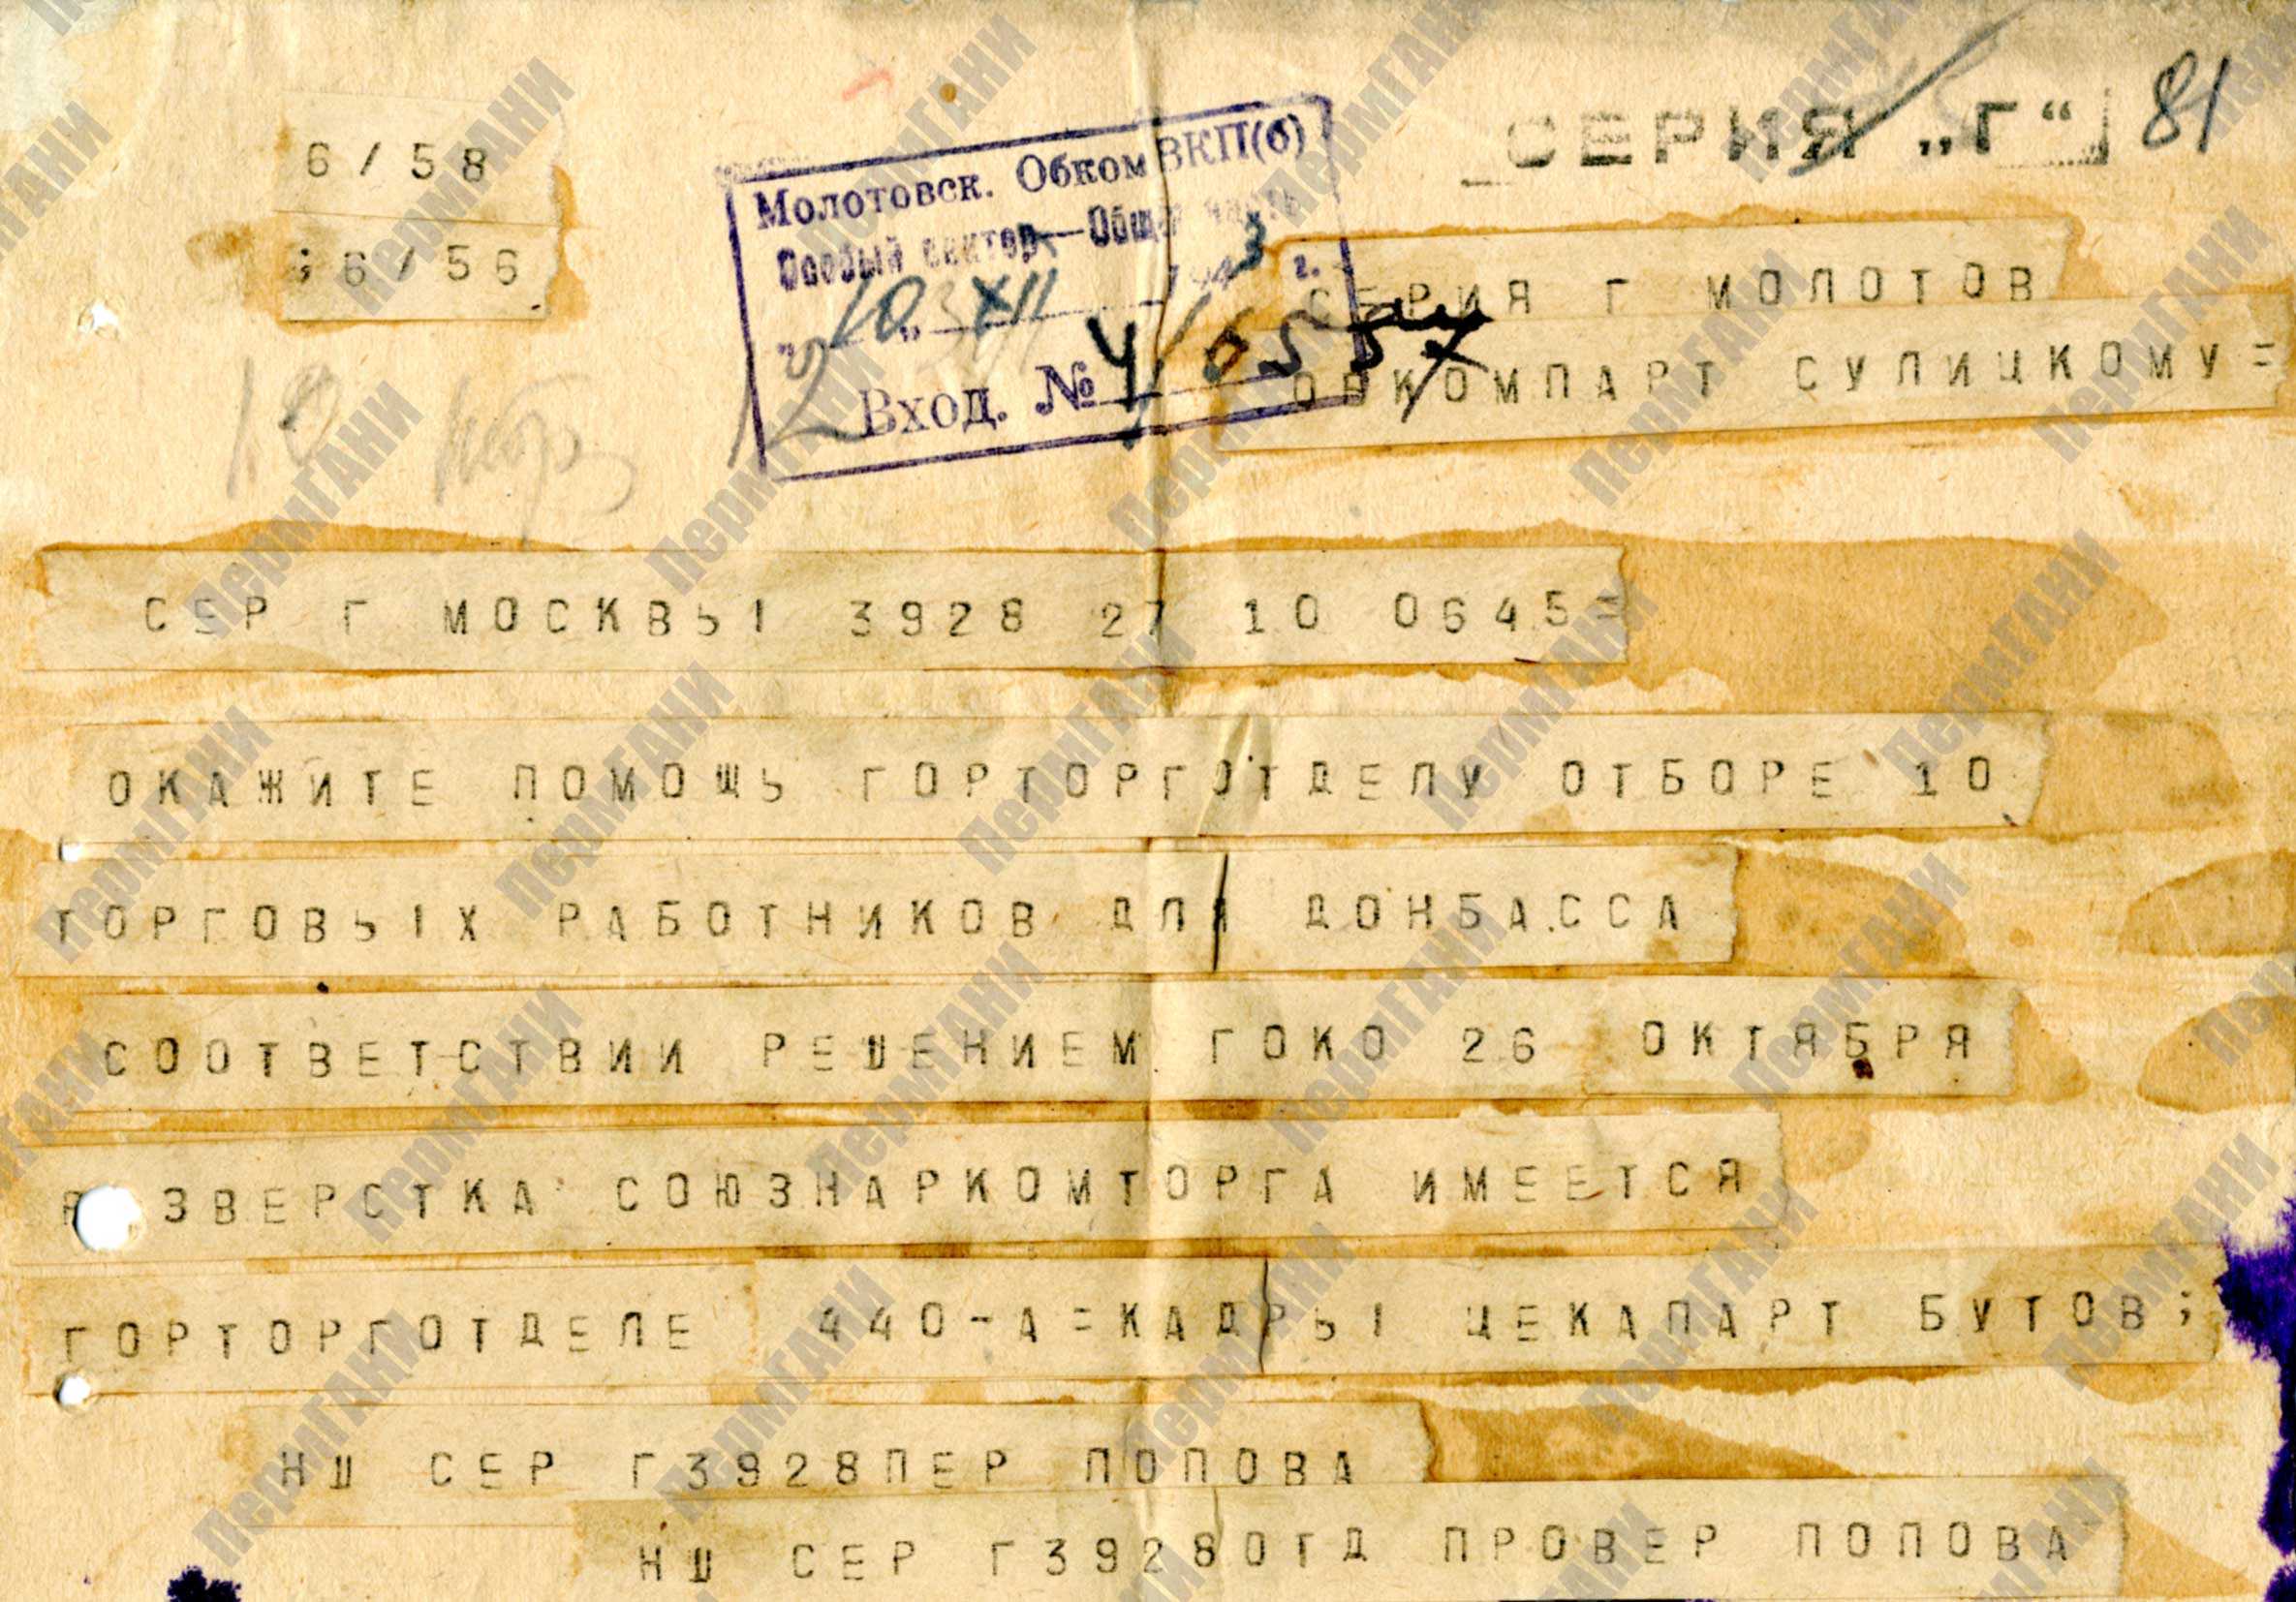 СЕРИЯ „Г“
81
6/58
;6/56
Молотовск. Обком ВКП(б)
Особый сектор—Общая часть
„10“ XII 1943 г.
Вход. №
СЕРИЯ Г МОЛОТОВ
ОБКОМПАРТ СУЛИЦКОМУ=
СЕР Г МОСКВЫ 3928 27 10 0645=
ОКАЖИТЕ ПОМОЩЬ ГОРТОРГОТДЕЛУ ОТБОРЕ 10
ТОРГОВЫХ РАБОТНИКОВ ДЛЯ ДОНБАССА
СООТВЕТСТВИИ РЕШЕНИЕМ ГОКО 26 ОКТЯБРЯ
РАЗВЕРСТКА СОЮЗНАРКОМТОРГА ИМЕЕТСЯ
ГОРТОРГОТДЕЛЕ 440-А=КАДРЫ ЦЕКАПАРТ БУТОВ;
НШ СЕР Г3928ПЕР ПОПОВА
НШ СЕР Г3928ОТД ПРОВЕР ПОПОВА